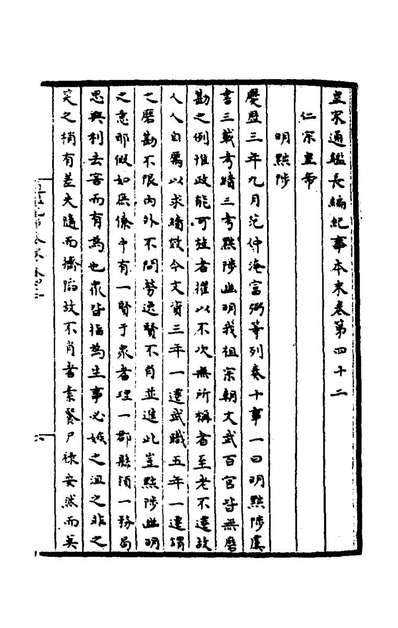 皇宋通鑑長編紀事本末卷第四十二
仁宗皇帝
明黜陟
慶歷三年九月范仲淹富弼等列奏十事一曰明黜陟虞
書三載考績三考黜陟幽明我祖宗朝文武百官皆無磨
勘之例惟政能可旌者擢以不次無所稱者至老不遷故
人人自勵以求績效今文資三年一遷武職五年一遷謂
之磨勘不限內外不問勞逸賢不肖並進此豈黜陟幽明
之意耶假如庶僚中有一賢于衆者理一郡縣領一務局
思興利去害而有為也衆皆指為生事必嫉之沮之非之
笑之稍有差失隨而擠陷故不肖者素餐尸祿安然而莫